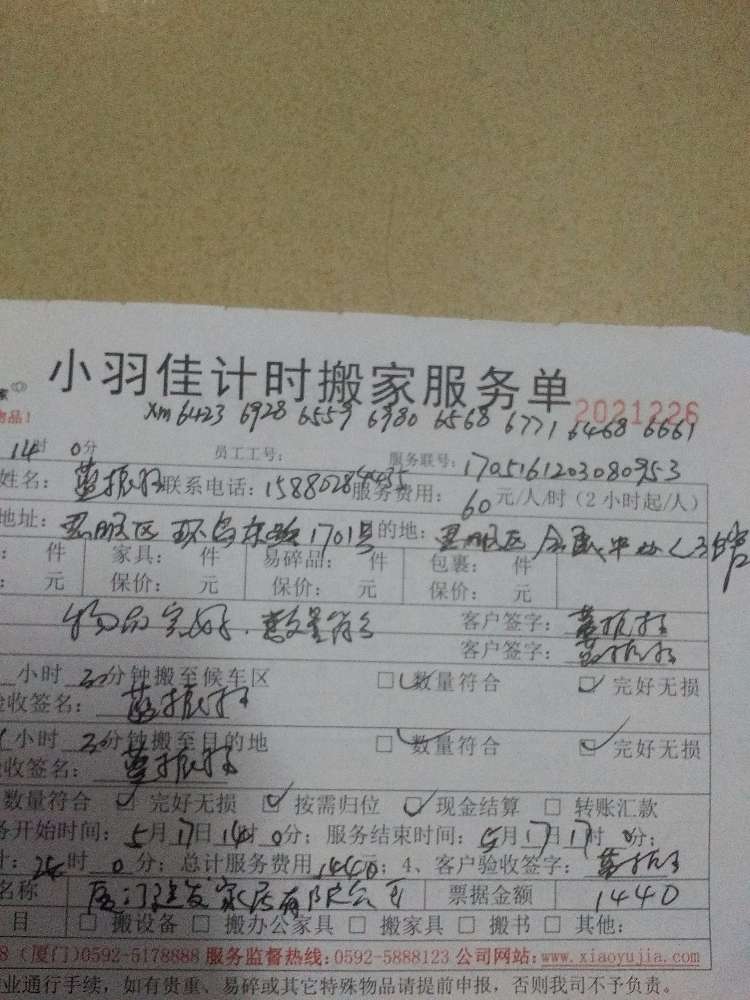 小羽佳计时搬家服务单
家
物品! 2021226
xm6423 6928 6559 6980 6568 6771 6468 6661
14时 0分 员工工号: 服务联号: 1705161203080953
姓名: 联系电话: 服务费用: 60元/人/时(2小时起/人)
地址: 思明区 环岛东路1701号 的地: 思明区
: 件 家具: 件 易碎品: 件 包裹: 件
: 元 保价: 元 保价: 元 保价: 元
物品完好,数量符合 客户签字:
客户签字:
小时 分钟搬至候车区 □数量符合 □完好无损
验收签名:
小时 分钟搬至目的地 □数量符合 □完好无损
收签名:
数量符合 □完好无损 □按需归位 □现金结算 □转账汇款
务开始时间: 5月17日14时0分; 服务结束时间: 5月17日17时0分;
计: 24时0分; 总计服务费用1440元; 4、客户验收签字:
名称 厦门建发家居有限公司 票据金额 1440
目 □搬设备 □搬办公家具 □搬家具 □搬书 □其他:
8 (厦门)0592-5178888 服务监督热线:0592-5888123 公司网站:www.xiaoyujia.com
业通行手续,如有贵重、易碎或其它特殊物品请提前申报,否则我司不予负责。